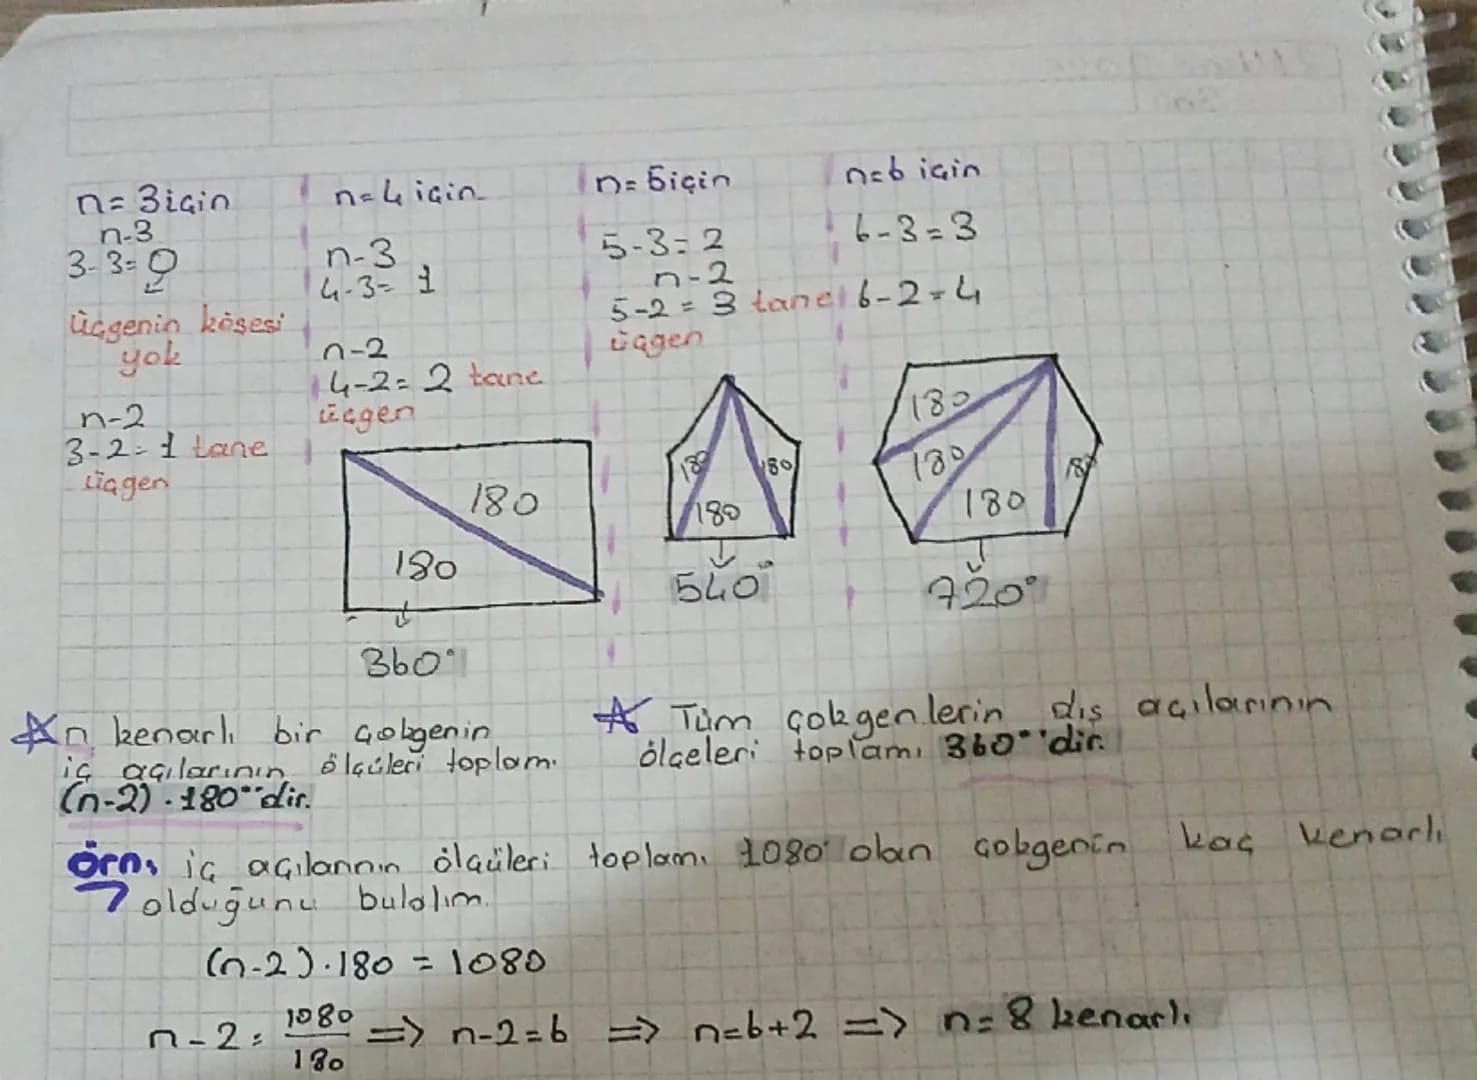 n=3için
n-3
3-3=0
üçgenin köşesi
yok
n-2
3-2=1 tane
üçgen
n=4 için
n-3
4-3= 1
n-2
4-2=2 tane
üçgen
180
180
360°
n=5için
5-3=2
n-2
5-2=3 tane
üçgen
180
180
180
540°
n=6 için
6-3=3
6-2=4
180
180
180
180
720°
n kenarlı bir çokgenin
iç açılarının ölçüleri toplamı
(n-2)·180°'dir.
Tüm çokgenlerin dış açılarının
ölçeleri toplamı 360°'dir.
Örn; iç açılarının ölçüleri toplamı 1080° olan çokgenin kaç kenarlı
olduğunu bulalım.
(n-2).180=1080
n-2=1080/180 => n-2=6 => n=6+2 => n=8 kenarlı